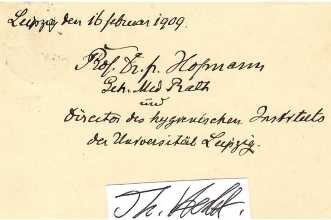 Leipzig den 16 februar 1909.
Prof. Dr. fr. Hofmann
Geh. Med Rath
und
Director des hygienischen Instituts
der Universität Leipzig.
Th.